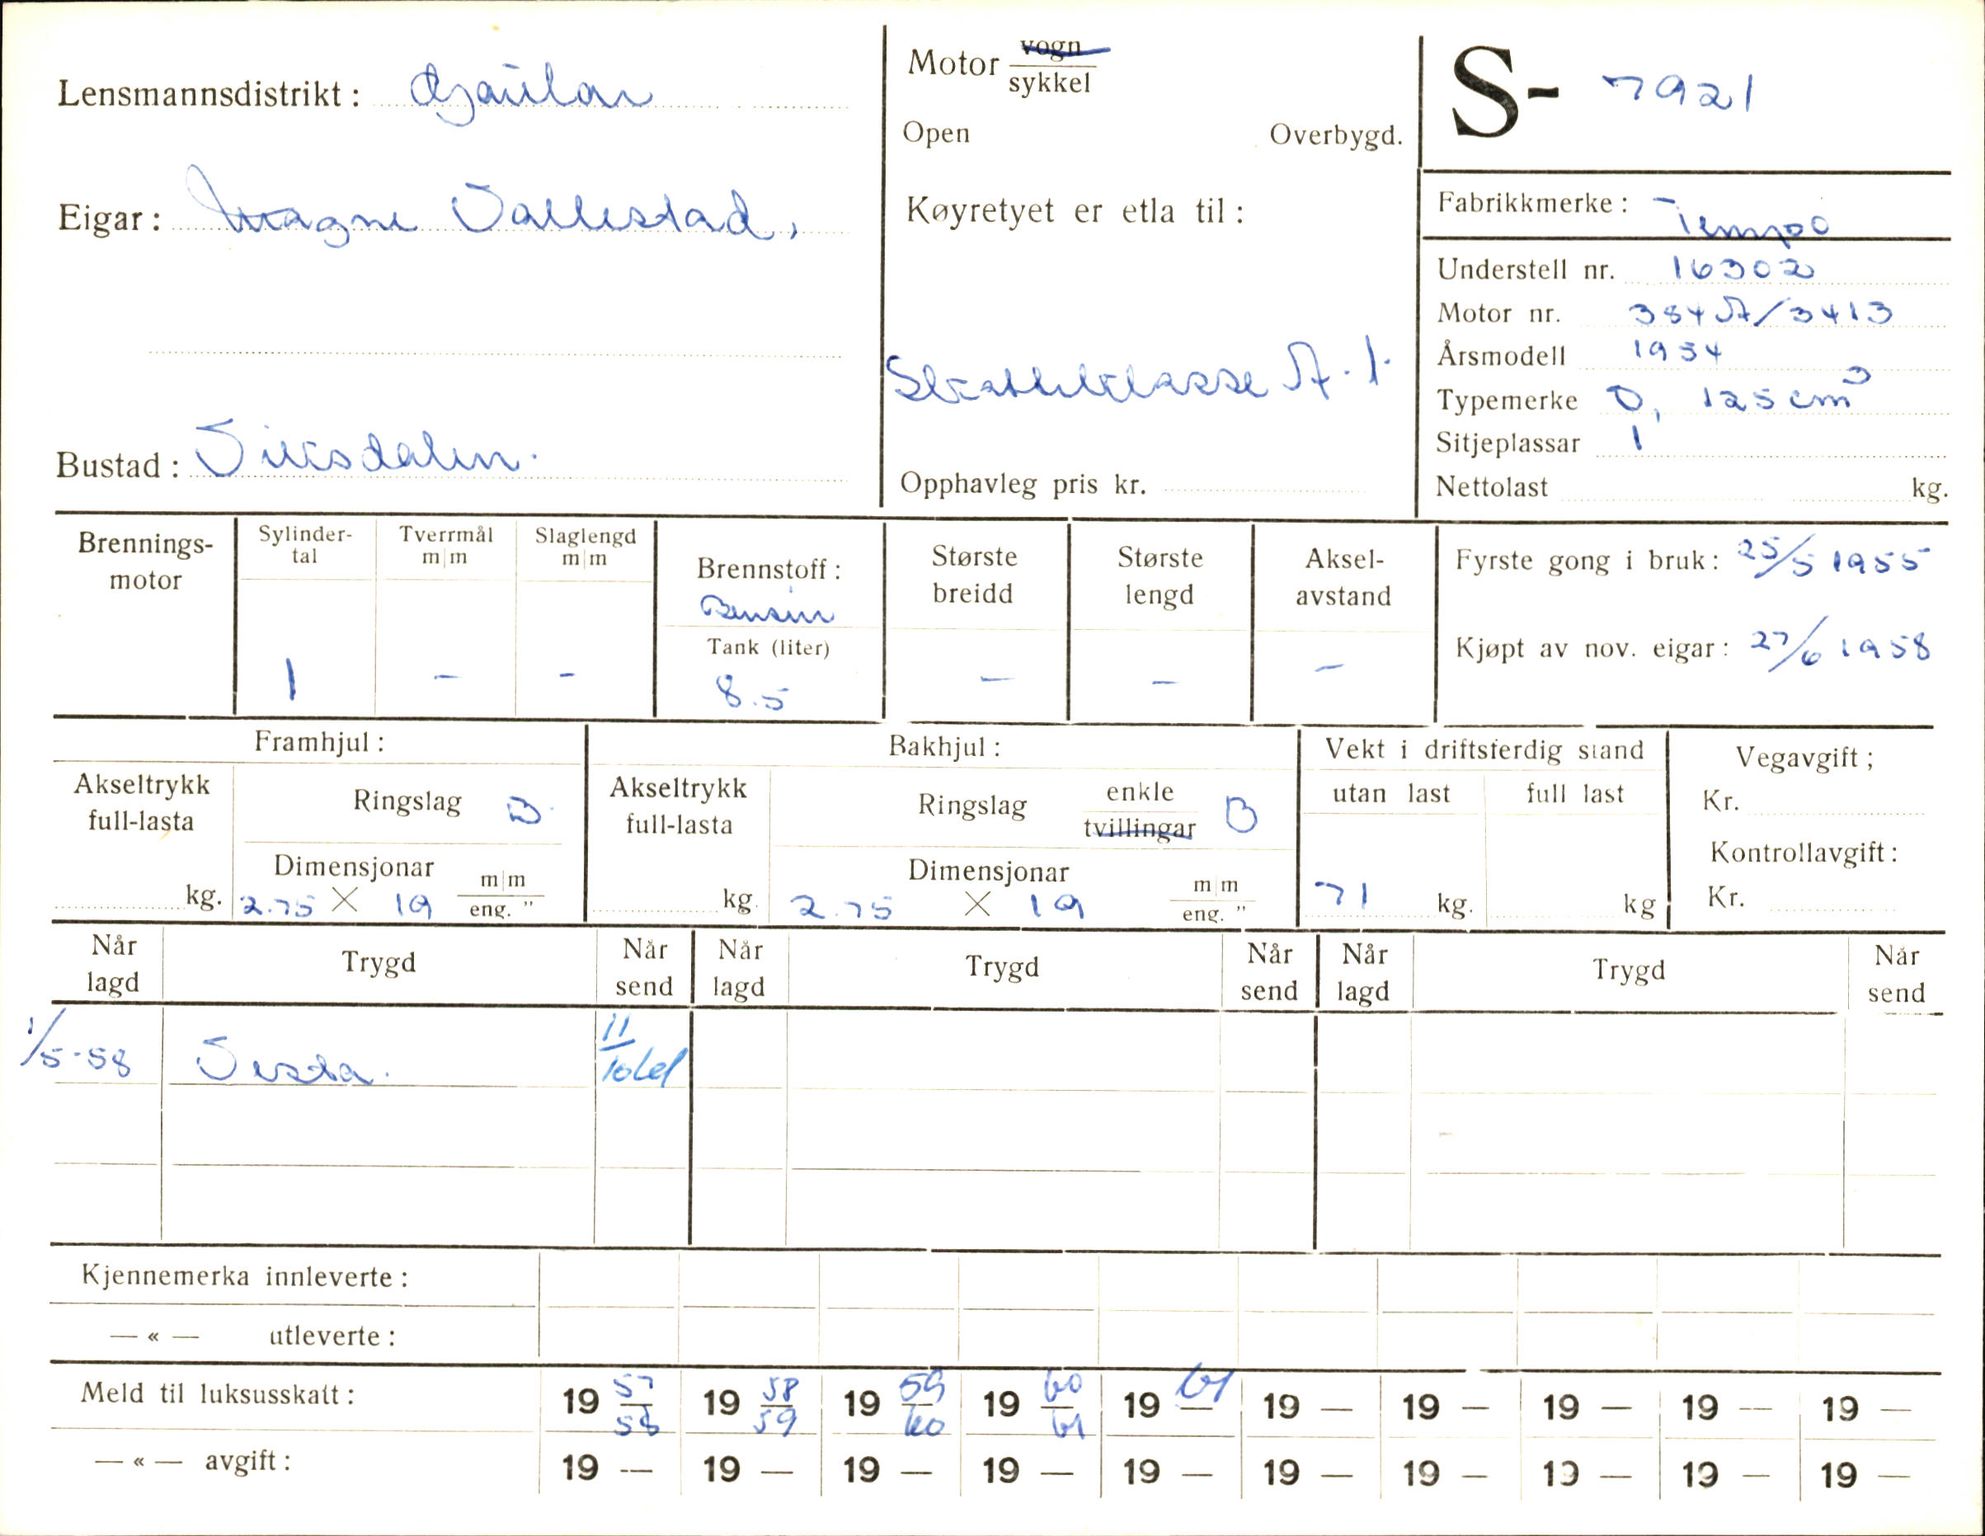 Lensmannsdistrikt: Gaular
Eigar: Magne Vallestad,
Bustad: Viksdalen.
Motor vogn
sykkel
Open Overbygd.
Køyretyet er etla til:
Skatteklasse A. 1.
Opphavleg pris kr.
S- 7921
Fabrikkmerke: Tempo
Understell nr. 16302
Motor nr. 354 A/3413
Årsmodell 1954
Typemerke O, 125 cm³
Sitjeplassar 1
Nettolast kg.
Brennings-
motor
Sylinder-
tal
1
Tverrmål
m|m
–
Slaglengd
m|m
–
Brennstoff:
Bensin
Tank (liter)
8.5
Største
breidd
–
Største
lengd
–
Aksel-
avstand
–
Fyrste gong i bruk: 25/5 1955
Kjøpt av nov. eigar: 27/6 1958
Framhjul:
Akseltrykk
full-lasta
kg.
Ringslag B.
Dimensjonar
2.75 × 19 m|m
eng. "
Bakhjul:
Akseltrykk
full-lasta
kg.
Ringslag enkle
tvillingar B
Dimensjonar
2.75 × 19 m|m
eng. "
Vekt i driftsferdig stand
utan last full last
71 kg. kg
Vegavgift;
Kr.
Kontrollavgift:
Kr.
Når
lagd Trygd Når
send Når
lagd Trygd Når
send Når
lagd Trygd Når
send
1/5-58 Vesta. 11/10 61
Kjennemerka innleverte:
— « — utleverte:
Meld til luksusskatt: 19 57/58 19 58/59 19 59/60 19 60/61 19 61 — 19 — 19 — 19 — 19 — 19 —
— « — avgift: 19 — 19 — 19 — 19 — 19 — 19 — 19 — 19 — 19 — 19 —